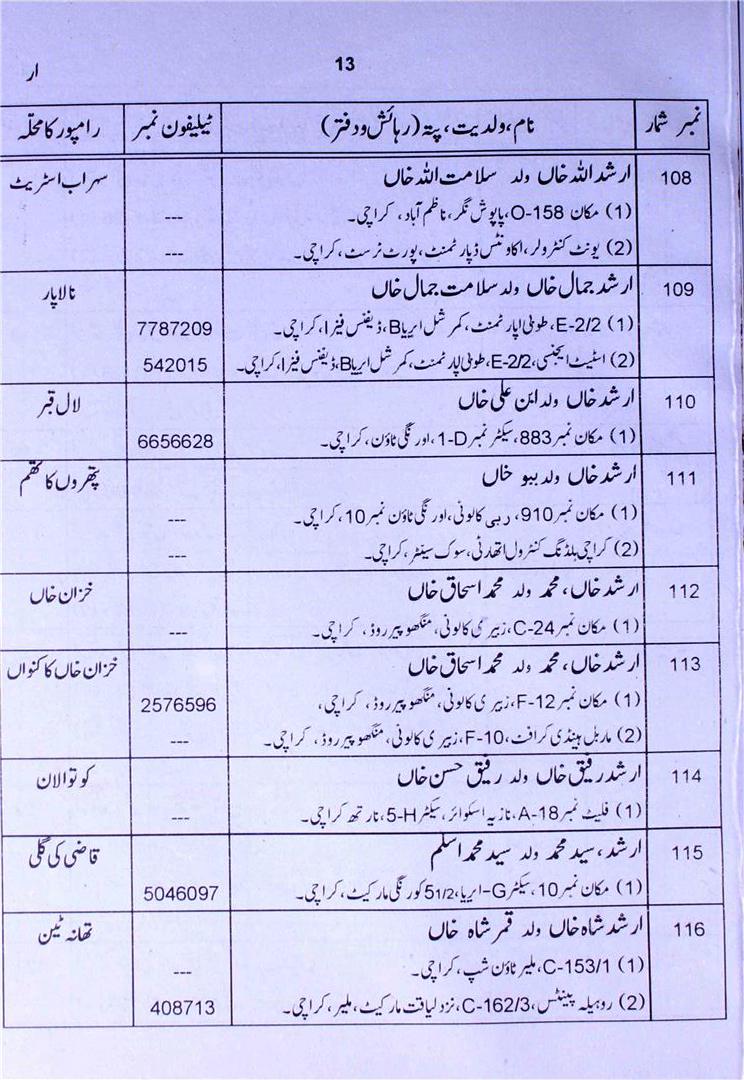 13
ار
نمبر شمار	نام، ولدیت، پتہ (رہائش و دفتر)	ٹیلیفون نمبر	رامپور کا محلّہ
108	ارشد اللہ خاں ولد سلامت اللہ خاں	سہراب اسٹریٹ
(1) مکان O-158، پاپوش نگر، ناظم آباد، کراچی۔	---
(2) یونٹ کنٹرولر، اکاونٹس ڈپارٹمنٹ، پورٹ ٹرسٹ، کراچی۔	---
109	ارشد جمال خاں ولد سلامت جمال خاں	نالاپار
(1) E-2/2، طوبٰی اپارٹمنٹ، کمرشل ایریا B، ڈیفنس فیز I، کراچی۔	7787209
(2) اسٹیٹ ایجنسی، E-2/2، طوبٰی اپارٹمنٹ، کمرشل ایریا B، ڈیفنس فیز I، کراچی۔	542015
110	ارشد خاں ولد ابن علی خاں	لال قبر
(1) مکان نمبر 883، سیکٹر نمبر 1-D، اورنگی ٹاؤن، کراچی۔	6656628
111	ارشد خاں ولد ببو خاں	پتھروں کا تھم
(1) مکان نمبر 910، دبی کالونی، اورنگی ٹاؤن نمبر 10، کراچی۔	---
(2) کراچی بلڈنگ کنٹرول اتھارٹی، سوک سینٹر، کراچی۔	---
112	ارشد خاں، محمد ولد محمد اسحاق خاں	خزان خاں
(1) مکان نمبر C-24، زبیری کالونی، منگھو پیر روڈ، کراچی۔	---
113	ارشد خاں، محمد ولد محمد اسحاق خاں	خزان خاں کا کنواں
(1) مکان نمبر F-12، زبیری کالونی، منگھو پیر روڈ، کراچی،	2576596
(2) ماربل ہینڈی کرافٹ، F-10، زبیری کالونی، منگھو پیر روڈ، کراچی۔	---
114	ارشد رفیق خاں ولد رفیق حسن خاں	کوتوالان
(1) فلیٹ نمبر A-18، نازیہ اسکوائر، سیکٹر 5-H، نارتھ کراچی۔	---
115	ارشد، سید محمد ولد سید محمد اسلم	قاضی کی گلی
(1) مکان نمبر 10، سیکٹر G-ایریا، 51/2 کورنگی مارکیٹ، کراچی۔	5046097
116	ارشد شاہ خاں ولد قمر شاہ خاں	تھانہ ٹین
(1) C-153/1، ملیر ٹاؤن شپ، کراچی۔	---
(2) روہیلہ پینٹس، C-162/3، نزد لیاقت مارکیٹ، ملیر، کراچی۔	408713